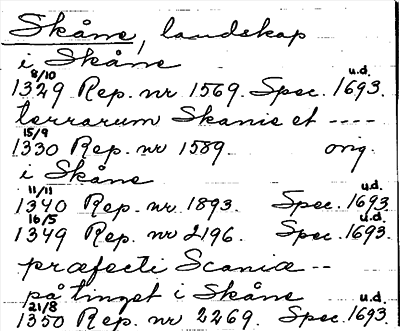 Skåne, landskap
i Skåne
8/10 u.d.
1329 Rep. nr 1569. Spec. 1693.
terrarum Skanie et ----
15/9
1330 Rep. nr 1589. orig.
i Skåne
11/11 u.d.
1340 Rep. nr 1893. Spec. 1693
16/5 u.d.
1349 Rep. nr 2196. Spec. 1693.
præfecti Scaniæ --
på tinget i Skåne
21/8 u.d.
1350 Rep. nr 2269. Spec. 1693.